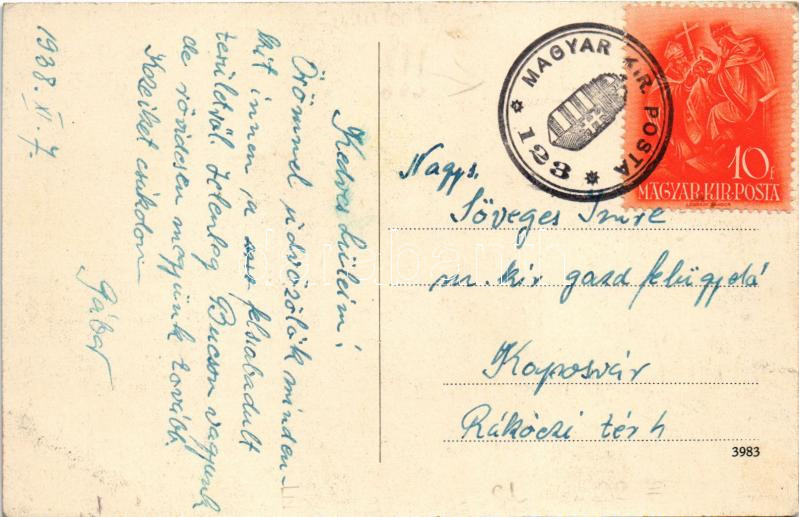 1938. XI. 7.
Kedves Szüleim!
Örömmel üdvözölök minden-
kit innen, a felszabadult
területről. Jelenleg Bucson vagyunk
de rövidesen megyünk tovább.
Kezeiket csókolom
Gábor
MAGYAR KIR. POSTA
123
10f
MAGYAR·KIR·POSTA
Nagys.
Söveges Imre
m. kir gazd felügyelő
Kaposvár
Rákóczi tér 4
3983
Darabanth